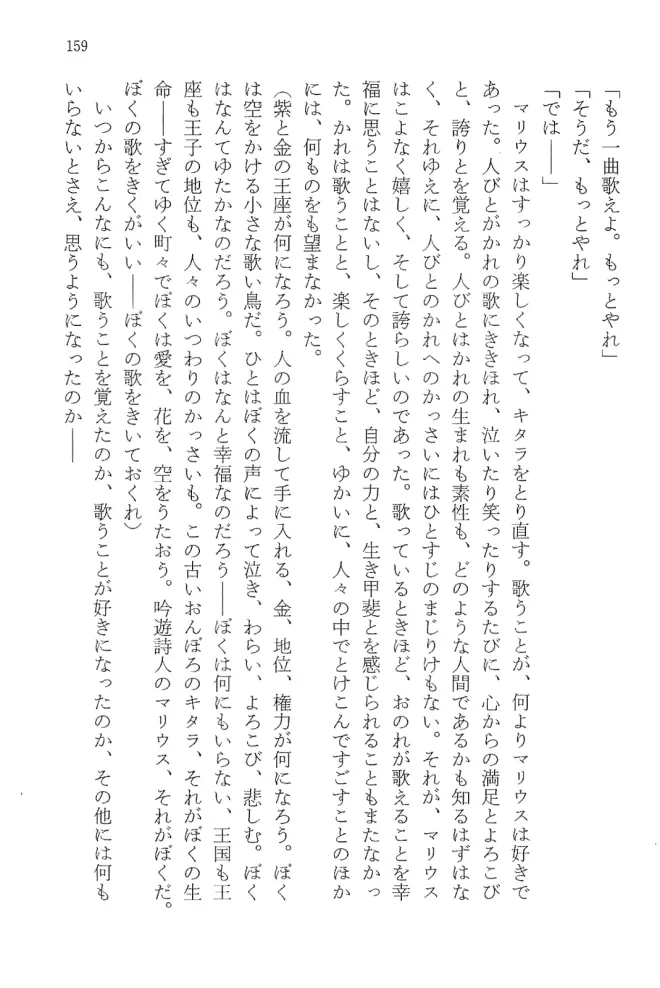 159
「もう一曲歌えよ。もっとやれ」
「そうだ、もっとやれ」
「では――」
マリウスはすっかり楽しくなって、キタラをとり直す。歌うことが、何よりマリウスは好きで
あった。人びとがかれの歌にききほれ、泣いたり笑ったりするたびに、心からの満足とよろこび
と、誇りとを覚える。人びとはかれの生まれも素性も、どのような人間であるかも知るはずはな
く、それゆえに、人びとのかれへのかっさいにはひとすじのまじりけもない。それが、マリウス
はこよなく嬉しく、そして誇らしいのであった。歌っているときほど、おのれが歌えることを幸
福に思うことはないし、そのときほど、自分の力と、生き甲斐とを感じられることもまたなかっ
た。かれは歌うことと、楽しくくらすこと、ゆかいに、人々の中でとけこんですごすことのほか
には、何ものをも望まなかった。
（紫と金の王座が何になろう。人の血を流して手に入れる、金、地位、権力が何になろう。ぼく
は空をかける小さな歌い鳥だ。ひとはぼくの声によって泣き、わらい、よろこび、悲しむ。ぼく
はなんてゆたかなのだろう。ぼくはなんと幸福なのだろう――ぼくは何にもいらない、王国も王
座も王子の地位も、人々のいつわりのかっさいも。この古いおんぼろのキタラ、それがぼくの生
命――すぎてゆく町々でぼくは愛を、花を、空をうたおう。吟遊詩人のマリウス、それがぼくだ。
ぼくの歌をきくがいい――ぼくの歌をきいておくれ）
いつからこんなにも、歌うことを覚えたのか、歌うことが好きになったのか、その他には何も
いらないとさえ、思うようになったのか――